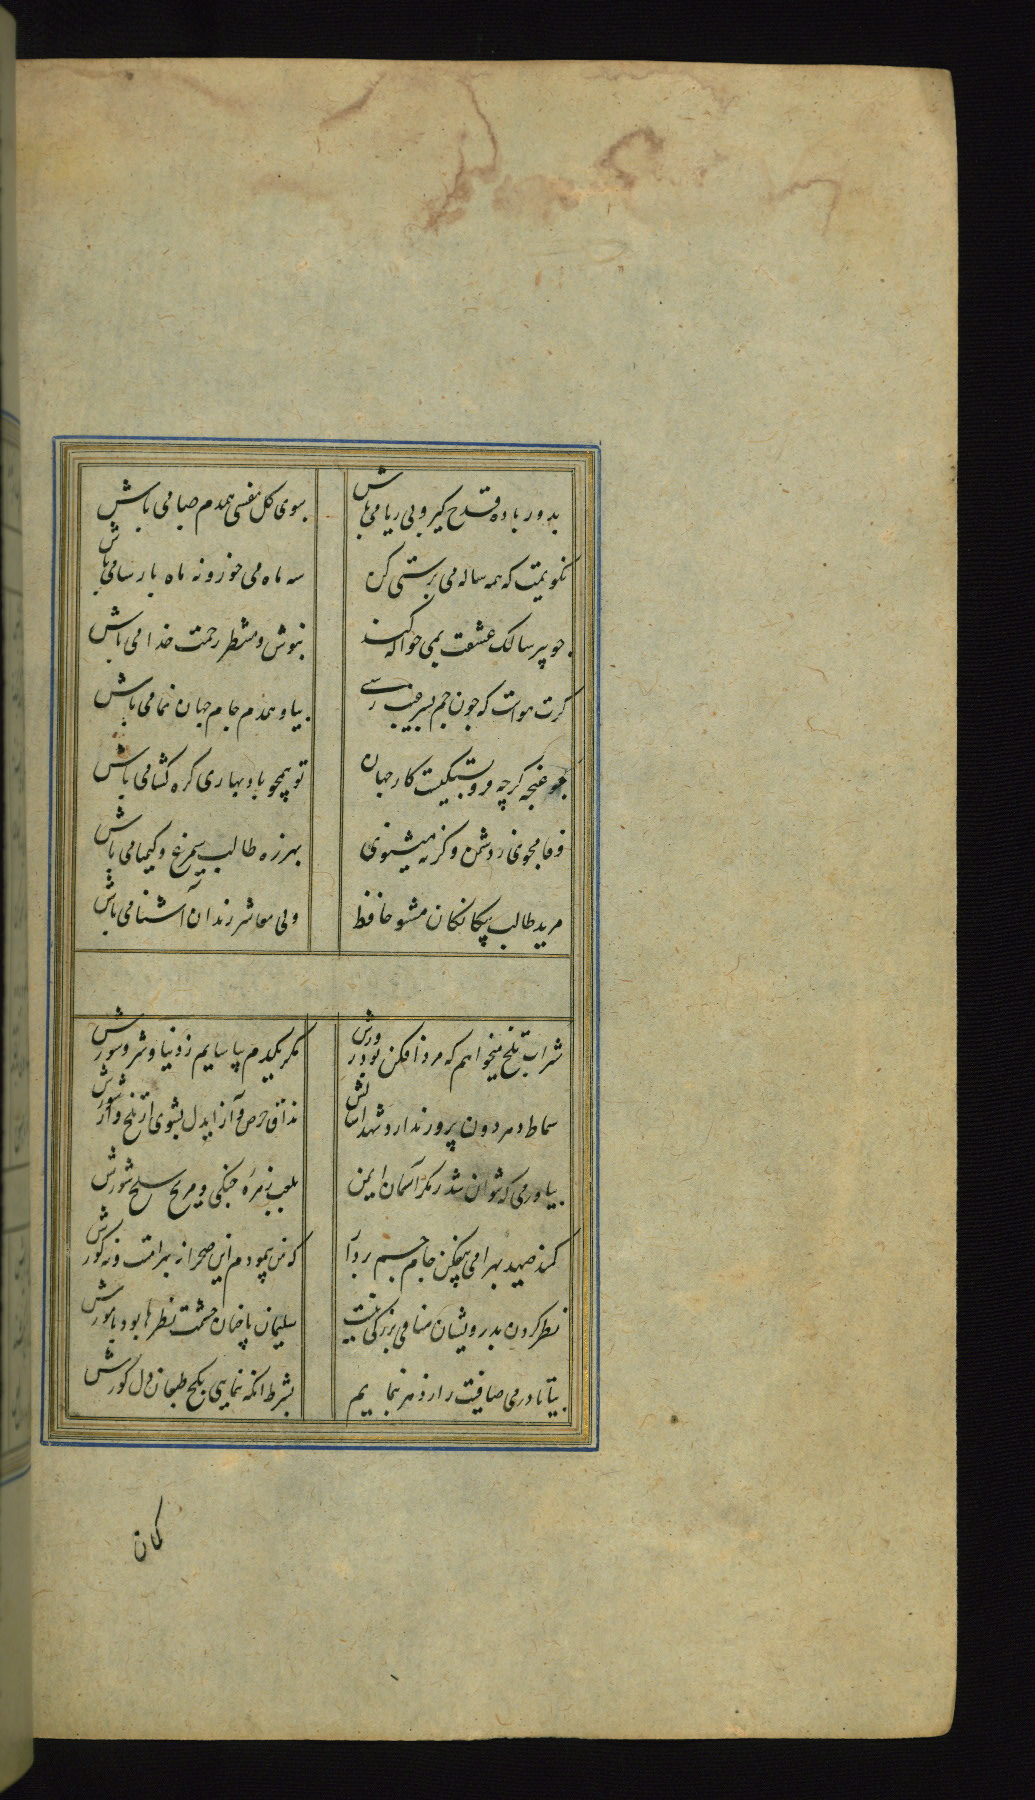 بدور باده قدح گیر و بی ریا می باش بوی گل نفسی همدم صبا می باش
نگویمت که همه ساله می پرستی کن سه ماه می خور و نه ماه پارسا می باش
چو پیر سالک عشقت بمی حواله کند بنوش و منتظر رحمت خدا می باش
گرت هواست که چون جم بسر غیب رسی بیا و همدم جام جهان نما می باش
چو غنچه گرچه فروبستگیست کار جهان تو همچو باد بهاری گره گشا می باش
وفا مجوی ز دشمن وگرنه میشنوی بهرزه طالب سیمرغ و کیمیا می باش
مرید طالب بیگانگان مشو حافظ ولی معاشر رندان آشنا می باش
شراب تلخ میخواهم که مردافکن بود زورش مگر یکدم بیاسایم ز دنیا و شر و شورش
سماط دهر دون پرور ندارد شهد آسایش مذاق حرص و آز ایدل بشوی از تلخ و از شورش
بیاور می که نتوان شد ز مکر آسمان ایمن بلعب زهره چنگی و مریخ سلحشورش
کمند صید بهرامی بیفکن جام جم بردار که من پیمودم این صحرا نه بهرامست و نه گورش
نظر کردن بدرویشان منافی بزرگی نیست سلیمان با چنان حشمت نظرها بود با مورش
بیا تا در می صافیت راز دهر بنمایم بشرط آنکه ننمایی بکج طبعان دل کورش
کمان